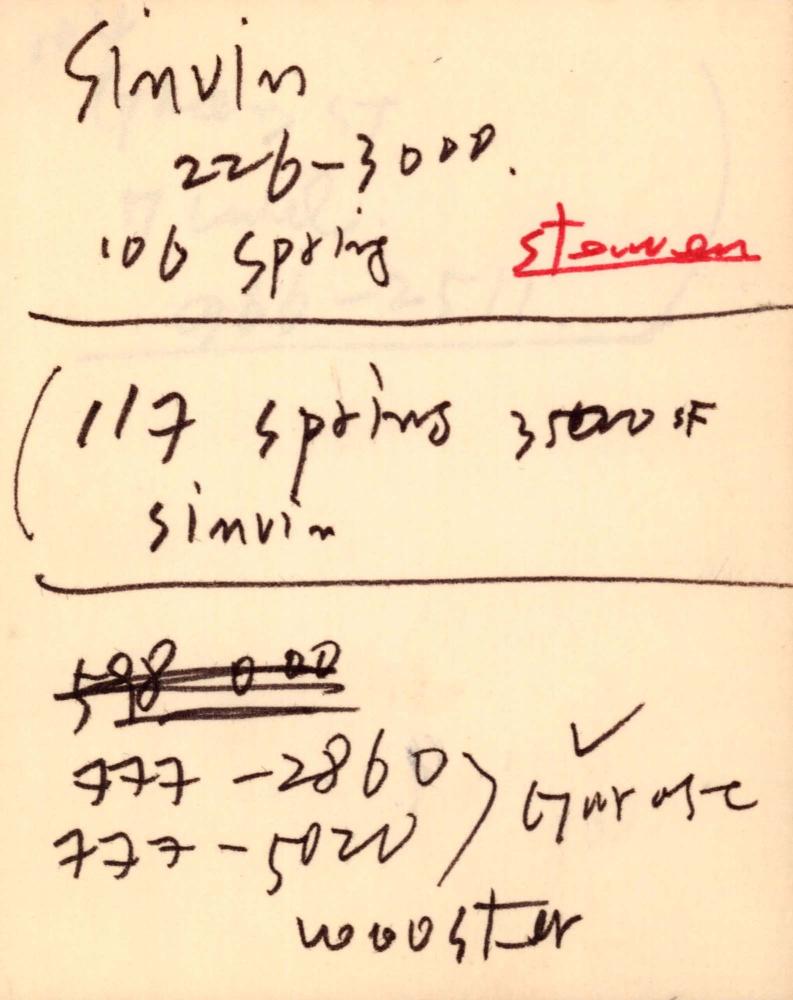 Sinvin
226-3000.
106 Spring
117 Spring 3500 SF
Sinvin
598 0000
777-2860
777-5020
wooster